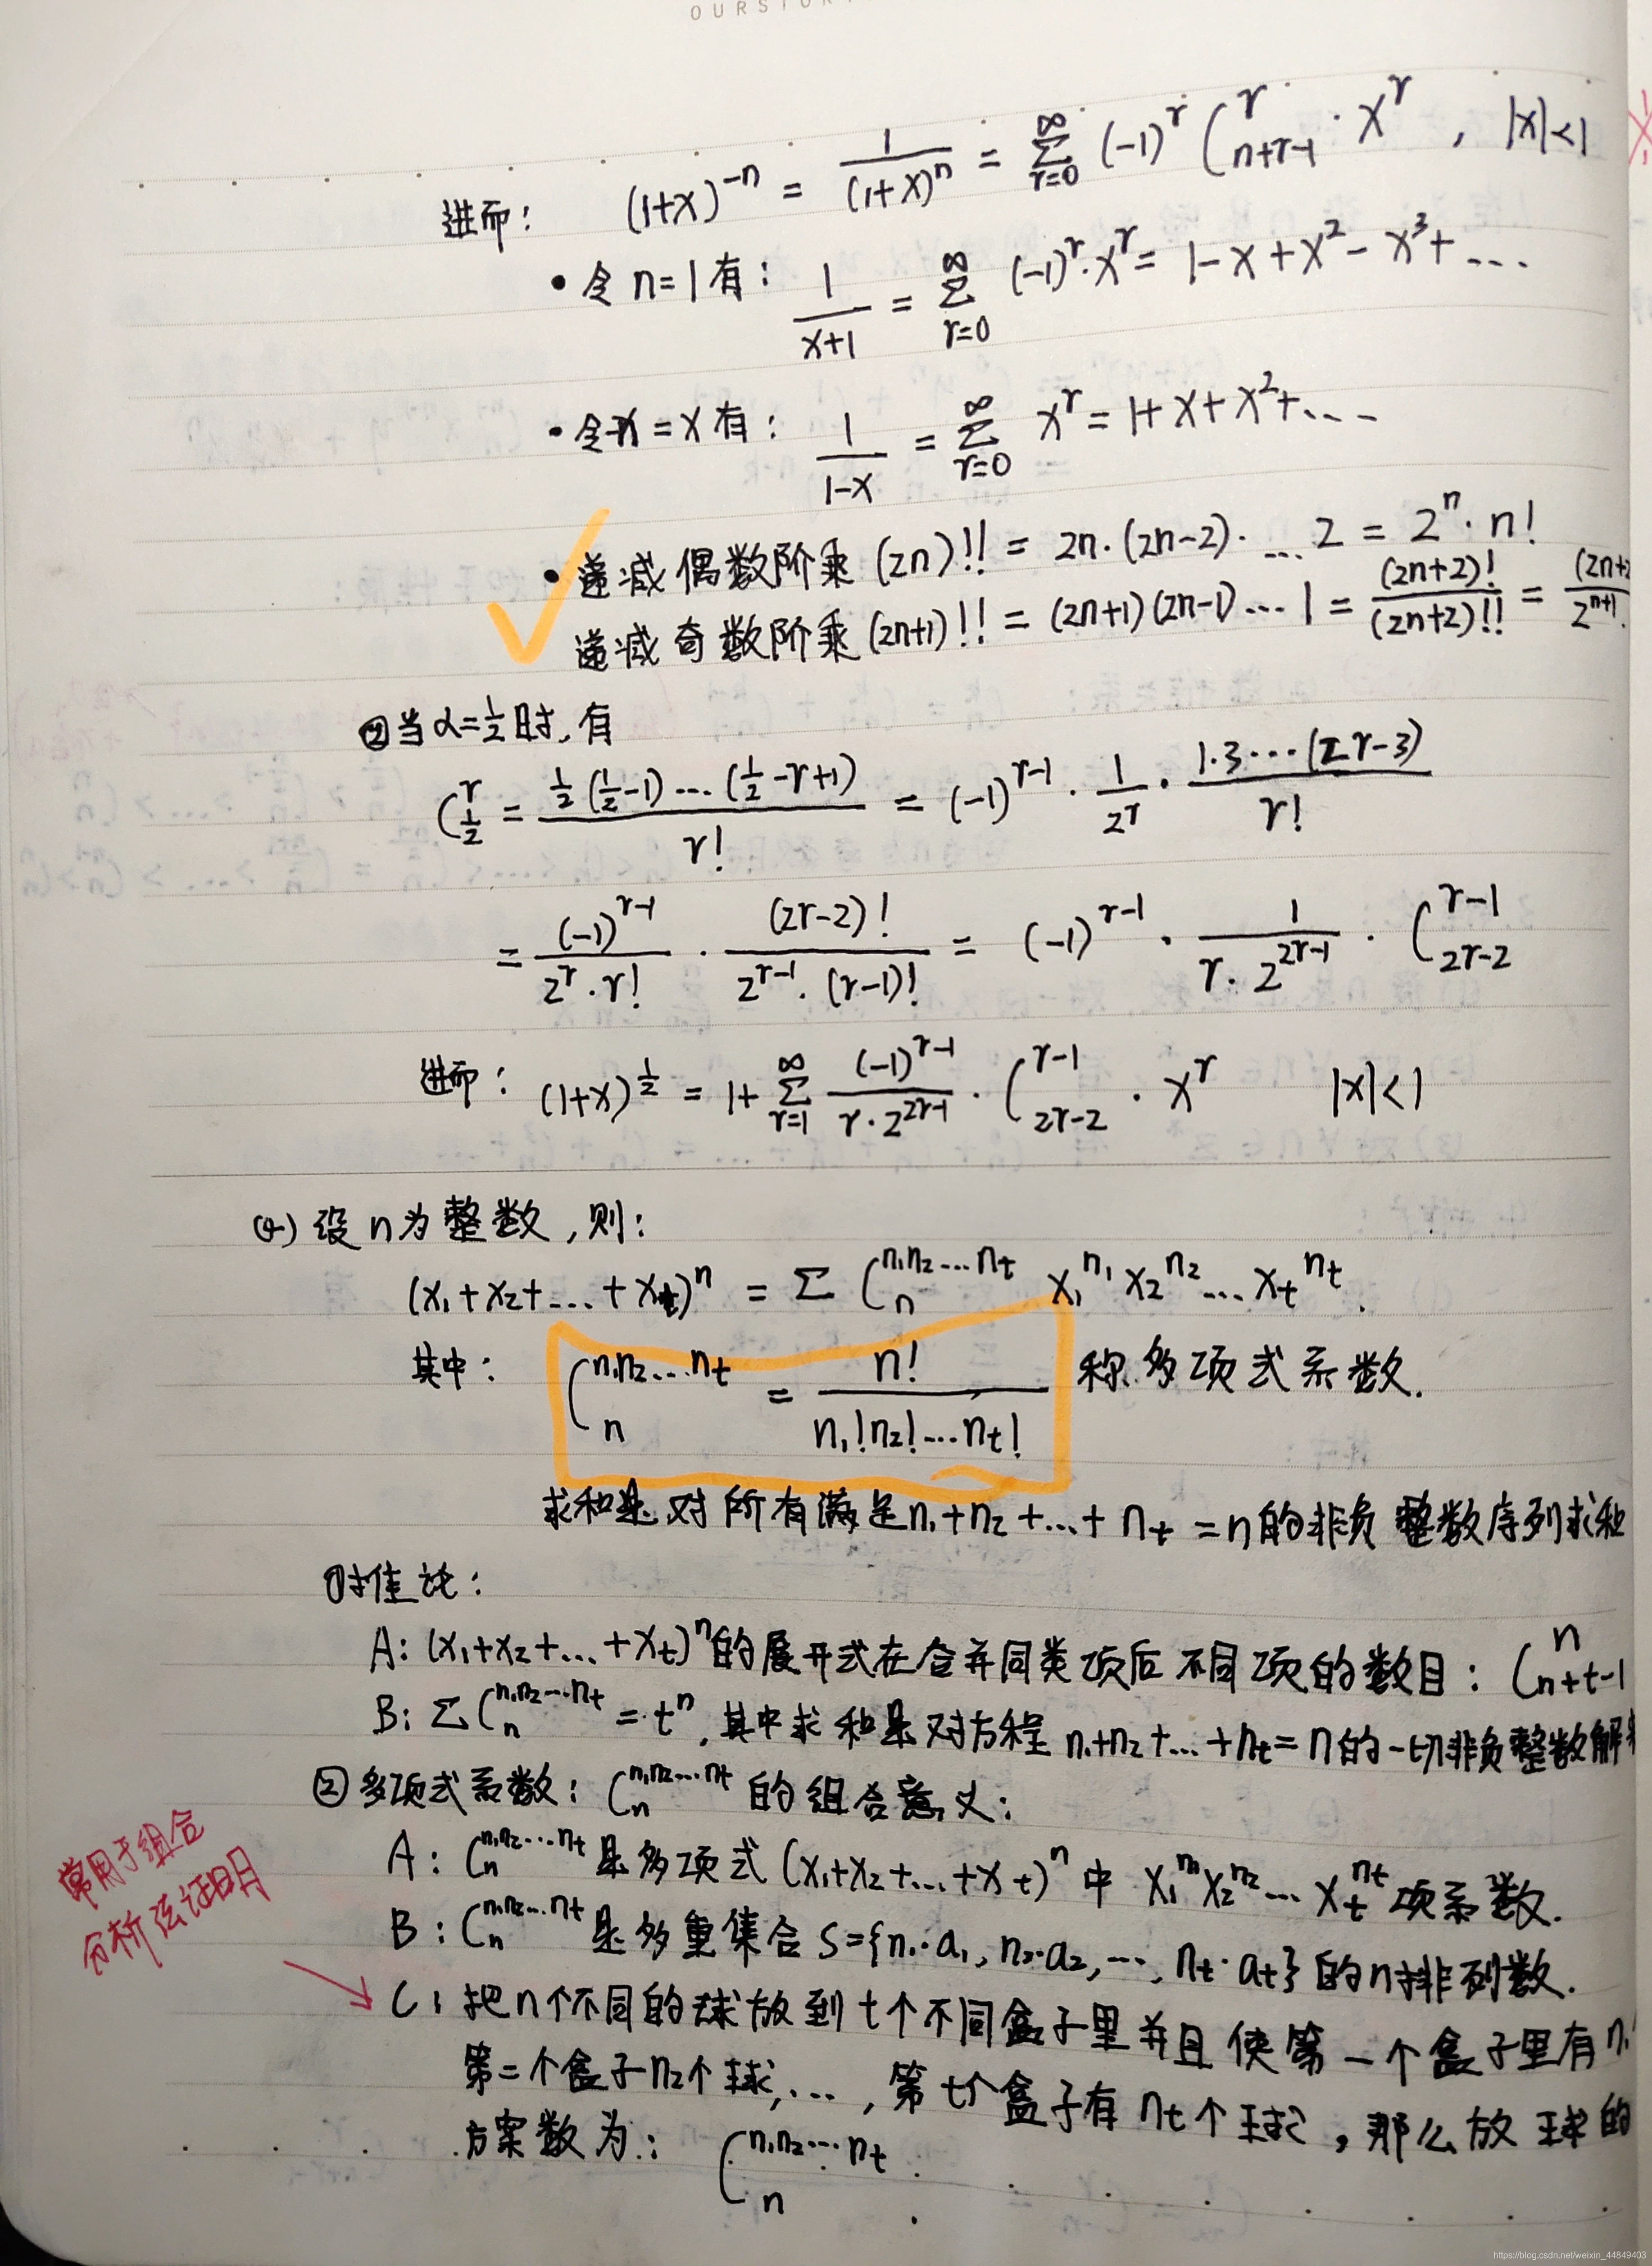 OURSTOR
进而： (1+x)^{-n} = \frac{1}{(1+x)^n} = \sum_{r=0}^{∞} (-1)^r C_{n+r-1}^{r} · x^r , |x|<1
• 令 n=1 有： \frac{1}{x+1} = \sum_{r=0}^{∞} (-1)^r · x^r = 1-x+x^2-x^3+...
• 令-x=x 有： \frac{1}{1-x} = \sum_{r=0}^{∞} x^r = 1+x+x^2+...
• 递减偶数阶乘 (2n)!! = 2n·(2n-2)· ... 2 = 2^n · n!
递减奇数阶乘 (2n+1)!! = (2n+1)(2n-1)...1 = \frac{(2n+2)!}{(2n+2)!!} = \frac{(2n+2}{2^{n+1}.}
②当 α=\frac{1}{2} 时，有
C_{\frac{1}{2}}^{r} = \frac{\frac{1}{2}(\frac{1}{2}-1)...(\frac{1}{2}-r+1)}{r!} = (-1)^{r-1} · \frac{1}{2^r} · \frac{1·3···(2r-3)}{r!}
= \frac{(-1)^{r-1}}{2^r · r!} · \frac{(2r-2)!}{2^{r-1} · (r-1)!} = (-1)^{r-1} · \frac{1}{r·2^{2r-1}} · C_{2r-2}^{r-1}
进而： (1+x)^{\frac{1}{2}} = 1+ \sum_{r=1}^{∞} \frac{(-1)^{r-1}}{r·2^{2r-1}} · C_{2r-2}^{r-1} · x^r |x|<1
(4) 设 n 为整数，则：
(x_1+x_2+...+x_t)^n = \sum C_n^{n_1n_2...n_t} x_1^{n_1} x_2^{n_2}...x_t^{n_t}.
其中： C_n^{n_1n_2...n_t} = \frac{n!}{n_1!n_2!...n_t!} 称多项式系数.
求和是对所有满足 n_1+n_2+...+n_t=n 的非负整数序列求和
A: (x_1+x_2+...+x_t)^n 的展开式在合并同类项后不同项的数目： C_{n+t-1}^{n}
B: \sum C_n^{n_1n_2...n_t} = t^n，其中求和是对方程 n_1+n_2+...+n_t=n 的一切非负整数解
② 多项式系数： C_n^{n_1n_2...n_t} 的组合意义：
A: C_n^{n_1n_2...n_t} 是多项式 (x_1+x_2+...+x_t)^n 中 x_1^{n_1}x_2^{n_2}...x_t^{n_t} 项系数.
B: C_n^{n_1n_2...n_t} 是多重集合 S={n_1·a_1, n_2·a_2, ..., n_t·a_t} 的 n 排列数.
常用于组合
分析法证明
C: 把 n 个不同的球放到 t 个不同盒子里并且使第一个盒子里有 n_1
第二个盒子 n_2 个球, ... , 第 t 个盒子有 n_t 个球，那么放球的
方案数为： C_n^{n_1n_2...n_t}.
https://blog.csdn.net/weixin_44849403